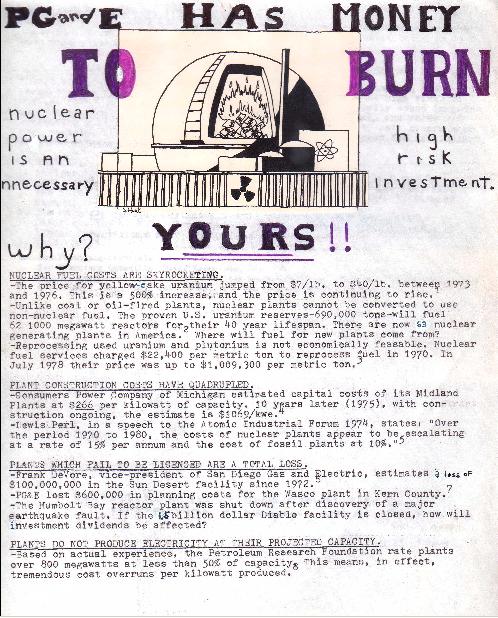 PG and E HAS MONEY
TO BURN
nuclear
power
is an
unnecessary
high
risk
investment.
YOURS!!
why?
NUCLEAR FUEL COSTS ARE SKYROCKETING.
-The price for yellow-cake uranium jumped from $7/lb. to $40/lb. between 1973
and 1976. This is a 500% increase, and the price is continuing to rise.
-Unlike coal or oil-fired plants, nuclear plants cannot be converted to use
non-nuclear fuel. The proven U.S. uranium reserves-690,000 tons-will fuel
62 1000 megawatt reactors for their 40 year lifespan. There are now 63 nuclear
generating plants in America. Where will fuel for new plants come from?
-Reprocessing used uranium and plutonium is not economically feasable. Nuclear
fuel services charged $22,400 per metric ton to reprocess fuel in 1970. In
July 1978 their price was up to $1,009,300 per metric ton.3
PLANT CONSTRUCTION COSTS HAVE QUADRUPLED.
-Consumers Power Company of Michigan estimated capital costs of its Midland
Plants at $266 per kilowatt of capacity. 10 years later (1975), with con-
struction ongoing, the estimate is $1069/kwe.4
-Lewis Perl, in a speech to the Atomic Industrial Forum 1974, states: "Over
the period 1970 to 1980, the costs of nuclear plants appear to be escalating
at a rate of 15% per annum and the cost of fossil plants at 10%."5
PLANTS WHICH FAIL TO BE LICENSED ARE A TOTAL LOSS.
-Frank DeVore, vice-president of San Diego Gas and Electric, estimates a loss of
$100,000,000 in the Sun Desert facility since 1972.
-PG&E lost $600,000 in planning costs for the Wasco plant in Kern County.7
-The Humbolt Bay reactor plant was shut down after discovery of a major
earthquake fault. If the billion dollar Diablo facility is closed, how will
investment dividends be affected?
PLANTS DO NOT PRODUCE ELECTRICITY AT THEIR PROJECTED CAPACITY.
-Based on actual experience, the Petroleum Research Foundation rate plants
over 800 megawatts at less than 50% of capacity. This means, in effect,
tremendous cost overruns per kilowatt produced.